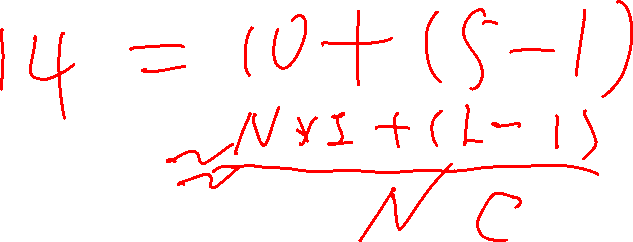 14 = 10 + (5 - 1)
≈ N x I + (L - 1)
N C